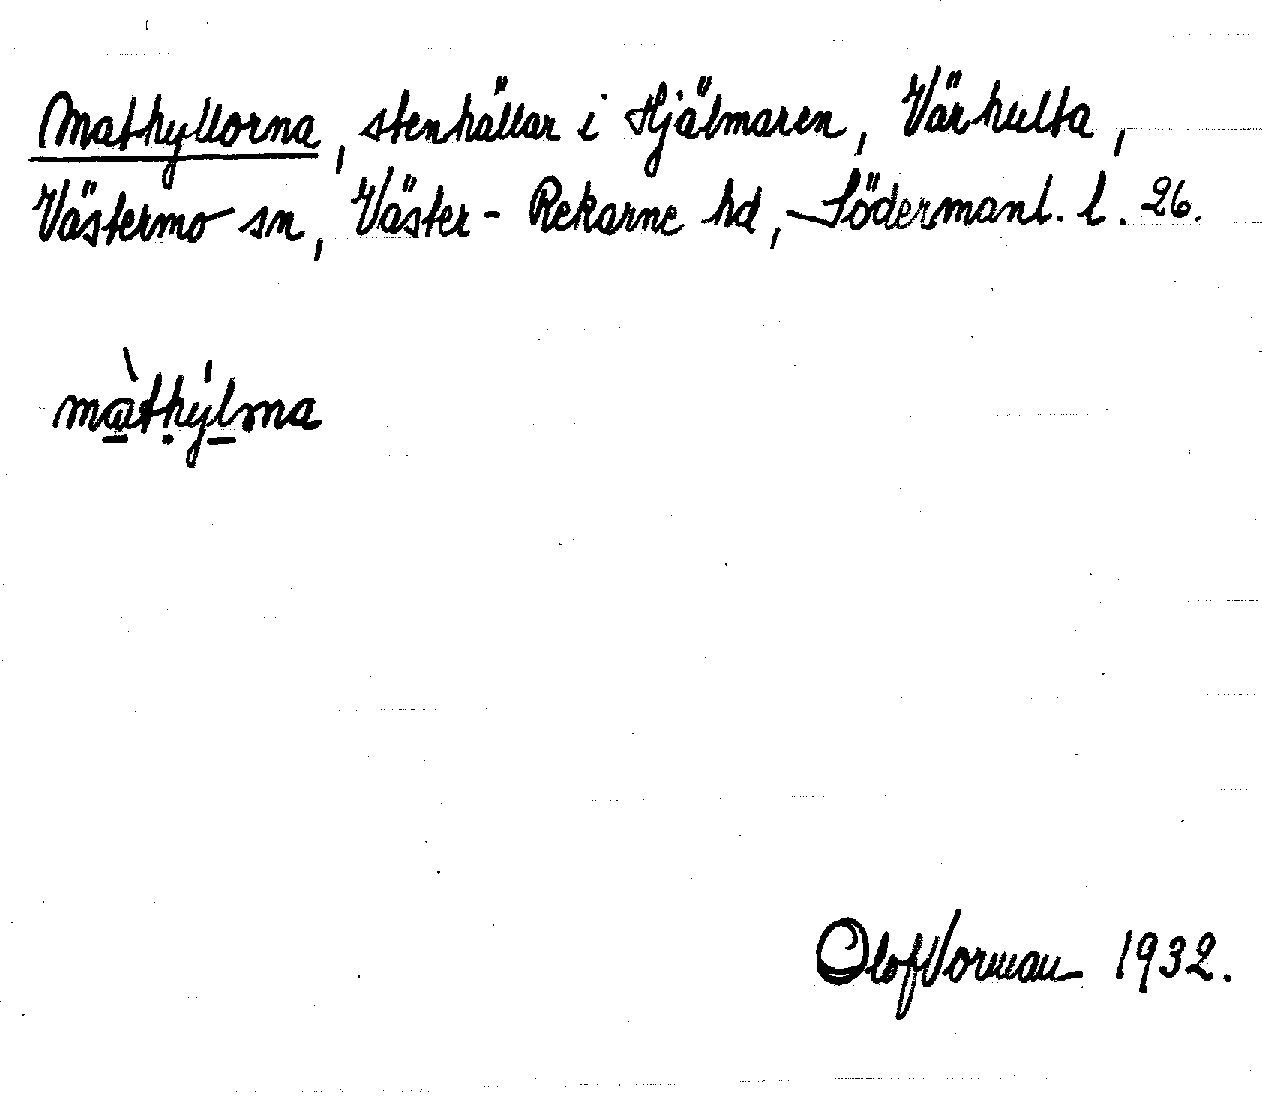 Mathyllorna, stenhällar i Hjälmaren, Värhulta,
Västermo sn, Väster-Rekarne hd, Södermanl. l. 26.
Olof Vorman 1932.